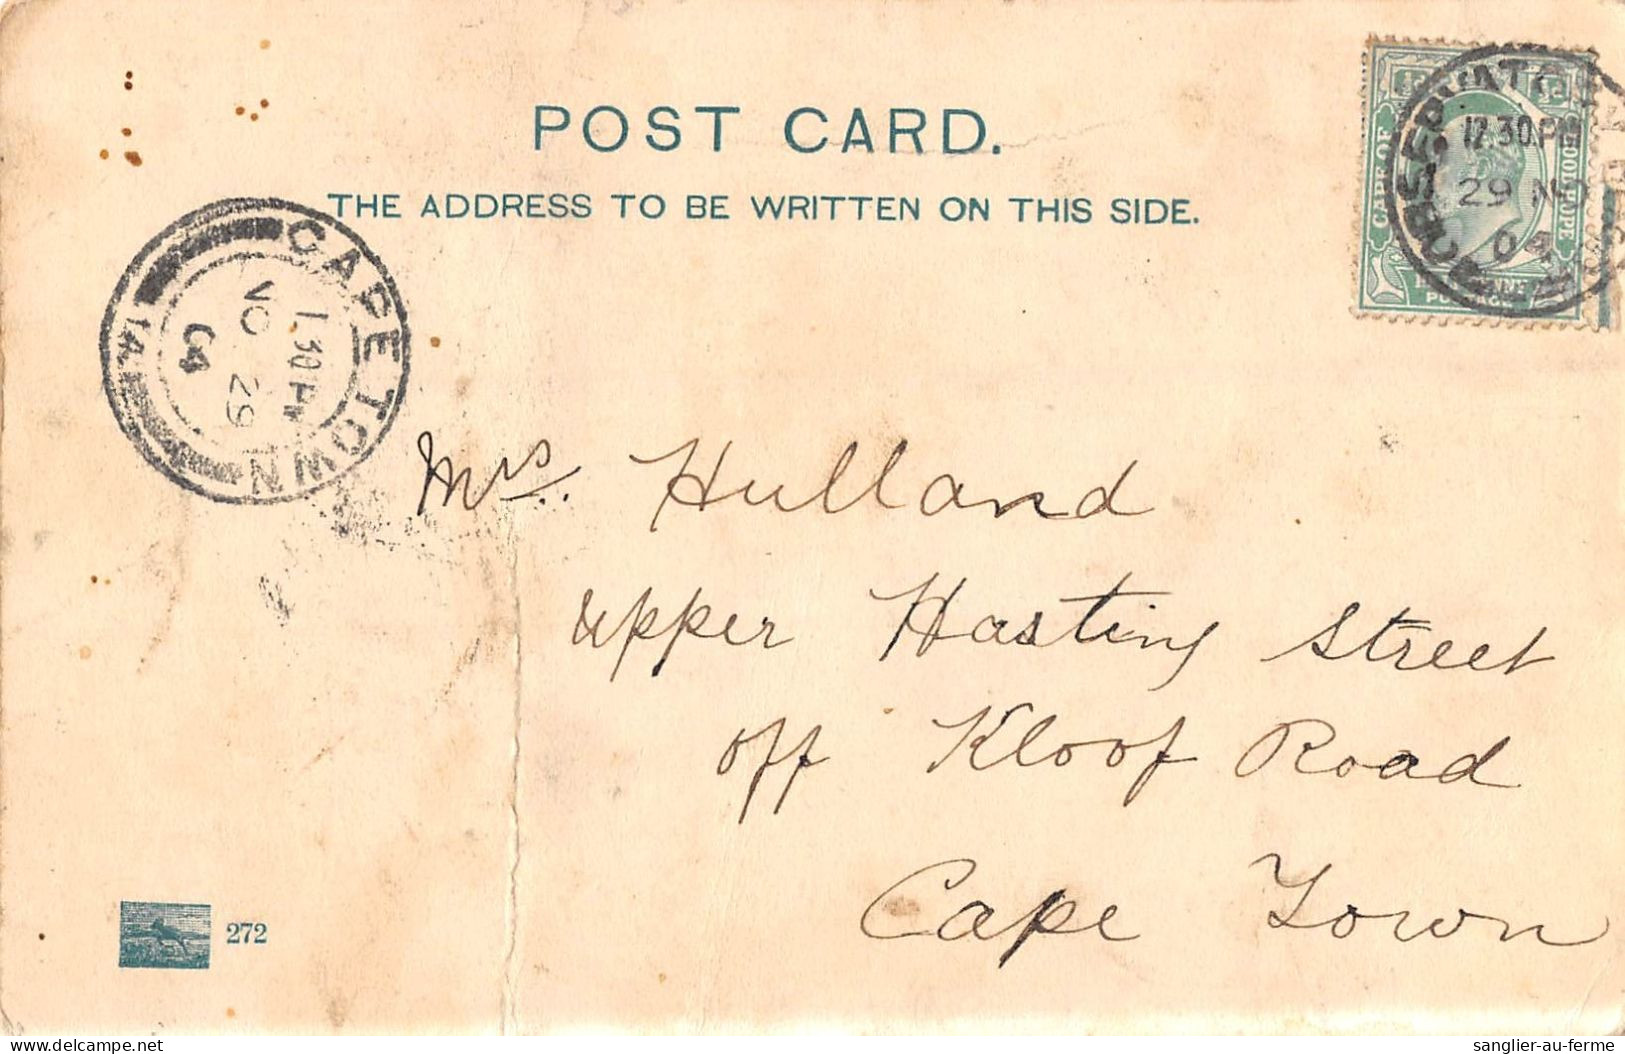 POST CARD.
THE ADDRESS TO BE WRITTEN ON THIS SIDE.
CAPE OF GOOD HOPE
OBSERVATORY
12.30 PM
29 NO
04
CAPE TOWN
1.30 PM
NO 29
04
Mrs. Hulland
upper Hasting Street
off Kloof Road
Cape Town
272
sanglier-au-ferme
delcampe.net